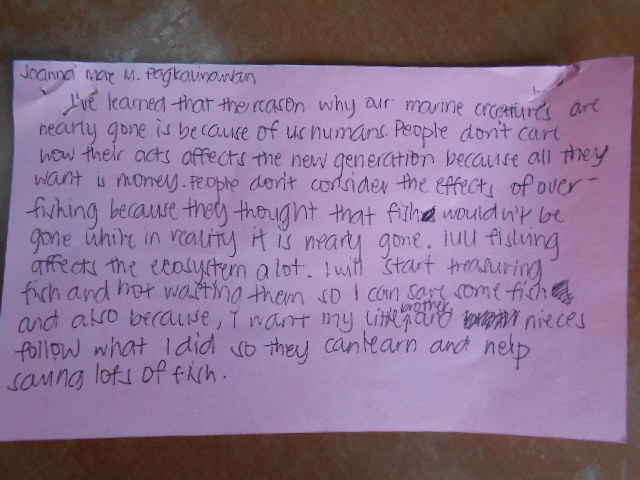 Joanna Mae M. Pagkalinawan
I've learned that the reason why our marine creatures are
nearly gone is because of us humans. People don't care
how their acts affects the new generation because all they
want is money. People don't consider the effects of over-
fishing because they thought that fish wouldn't be
gone while in reality it is nearly gone. IUU fishing
affects the ecosystem a lot. I will start treasuring
fish and not wasting them so I can save some fish
and also because, I want my little brother and nieces
follow what I did so they can learn and help
saving lots of fish.